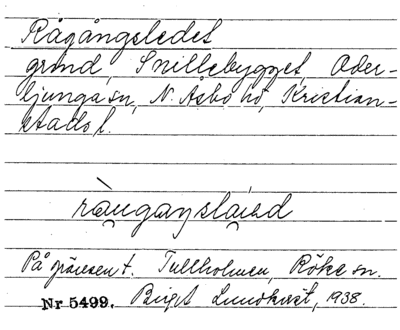 Rågångsledet
grind, Snillebygget, Oder-
ljunga sn, N. Åsbo hd, Kristian-
stads l.
På gränsen t. Tullholmen, Röke sn.
Nr 5499. Birgit Lundkvist, 1938.